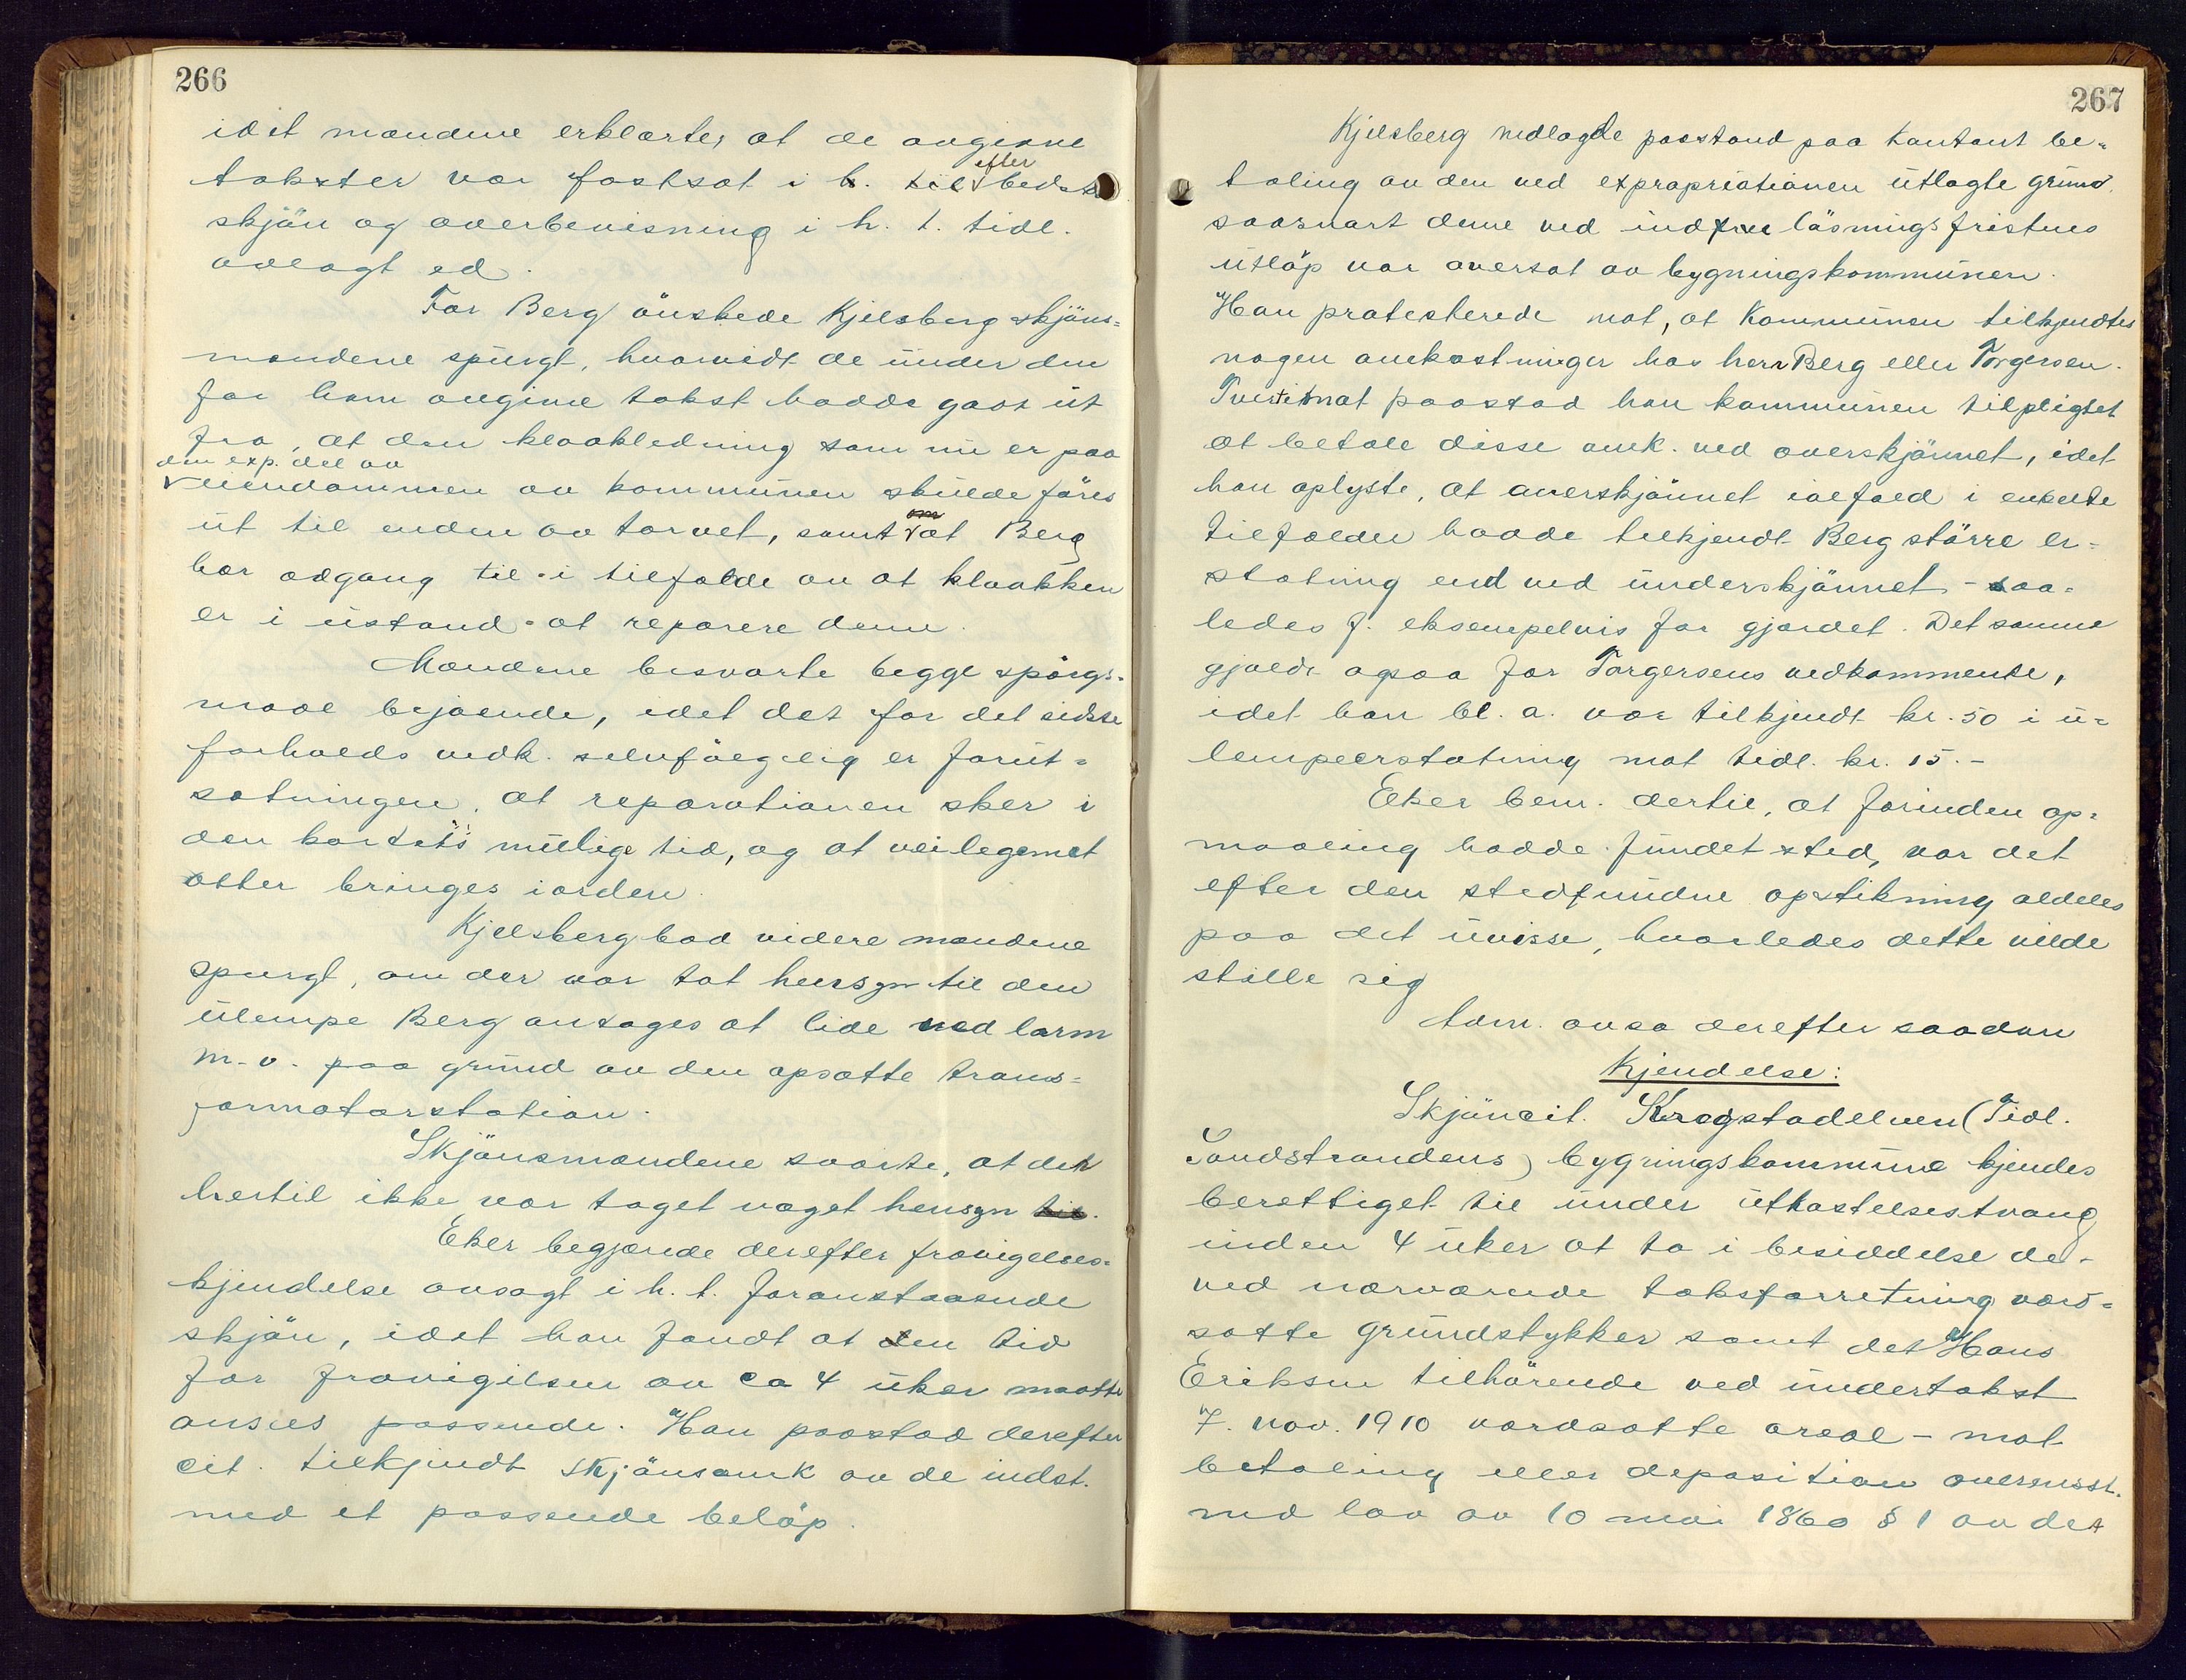 266
idet mændene erklærte, at de avgivne
takster var fastsat i h. til efter bedste
skjön og overbevisning i h. t. tidl.
avlagt ed.
For Berg önskede Kjelsberg skjöns-
mændene spurgt, hvorvidt de under den
for ham avgivne takst hadde gaat ut
fra, at den kloakledning som nu er paa
den exp. del av
veiendommen av kommunen skulde föres
ut til enden av torvet, samt om at Berg
har adgang til - i tilfælde av at kloakken
er i ustand - at reparere denne.
Mændene besvarte begge spörgs-
maal bejaende, idet det for det sidste
forholds vedk. selvfölgelig er forut-
sætningen, at reparationen sker i
den kortest mulige tid, og at veilegemet
atter bringes iorden.
Kjelsberg bad videre mændene
spurgt, om der var tat hensyn til den
ulempe Berg antages at lide ved larm
m. v. paa grund av den opsatte trans-
formatorstation.
Skjönsmændene svarte, at der
hertil ikke var taget noget hensyn til.
Eker begjærede derefter fravigelses-
kjendelse avsagt i h. t. foranstaaende
skjön, idet han fandt at den tid
for fravigelsen av ca 4 uker maatte
ansees passende. Han paastod derefter
cit. tilkjendt skjönsomk av de indst.
med et passende belöp.
267
Kjelsberg nedlagde paastand paa kontant be-
taling av den ved expropriationen utlagte grund
saasnart denne ved indlösningsfristens
utlöp var oversat av bygningskommunen.
Han protesterede mot, at Kommunen tilkjendtes
nogen omkostninger hos herr Berg eller Torgersen.
Tvertimot paastod han kommunen tilpligtet
at betale disse omk. ved overskjönnet, idet
han oplyste, at overskjönnet ialfald i enkelte
tilfælder hadde tilkjendt Berg större er-
statning end ved underskjönnet - saa-
ledes f. eksempelvis for gjærdet. Det samme
gjælder ogsaa for Torgersens vedkommende,
idet han bl. a. var tilkjendt kr. 50 i u-
lempeerstatning mot tidl. kr. 15.-
Eker bem. dertil, at forinden op-
maaling hadde fundet sted, var det
efter den stedfundne opstikning aldeles
paa det uvisse, hvorledes dette vilde
stille sig
Adm. avsa derefter saadan
Kjendelse:
Skjöncit. Krogstadelven (Tidl.
Sandstrandens) bygningskommune kjendes
berettiget til under utkastelsestvang
inden 4 uker at ta i besiddelse de
ved nærværende takstforretning værd-
satte grundstykker samt det Hans
Eriksen tilhörende ved undertakst
7. nov. 1910 værdsatte areal - mot
betaling eller deposition overensst.
med lov av 10 mai 1860 § 1 av det